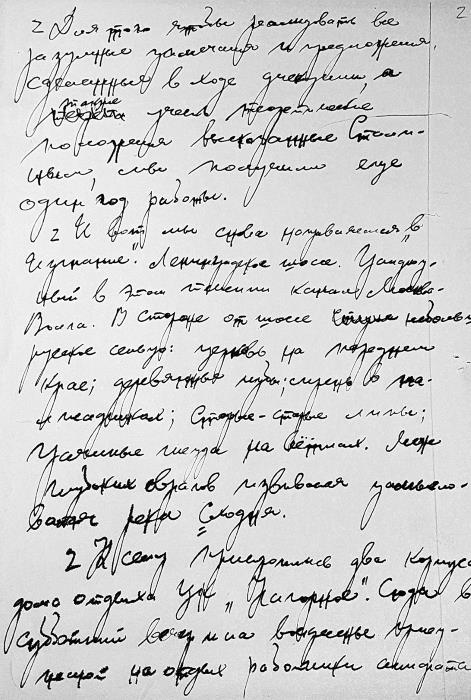 2
Для того чтобы реализовать все
разумные замечания и предложения,
сделанные в ходе дискуссии, а
также учесть теоретические
положения высказанные Стали-
ным, мы получили еще
один год работы.
И вот мы снова направляемся в
"Изгнание". Ленинградское шоссе.
ный в этом канал Москва-
Волга. В стороне от шоссе небольш
русское сельцо: церковь на переднем
крае; деревянные избы; сирень в па-
лисадниках; Старые-старые липы;
гнезда на ветках. Меж
глубоких оврагов извивался
река Сходня.
К селу пристроились два корпуса
дома отдыха "Нагорное". Сюда в
субботний вечер и на воскресенье приез-
на отдых работники аппарата